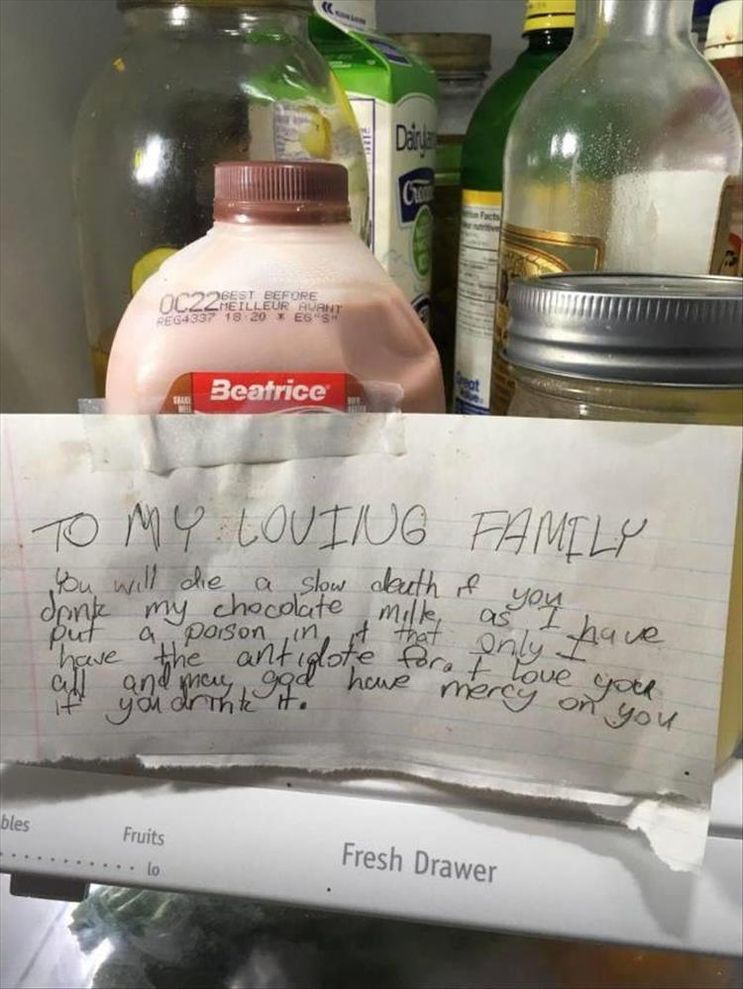 Dairyla
OC22 BEST BEFORE
MEILLEUR AVANT
REG4337 18:20 * EG"S"
Facts
SHAKE
WELL
Beatrice
TO MY LOVING FAMILY
You will die a slow death if you
drink my chocolate milk, as I have
put a poison in it that only I
have the antidote for. I love you
all and may god have mercy on you
if you drink it.
bles
Fruits
lo
Fresh Drawer